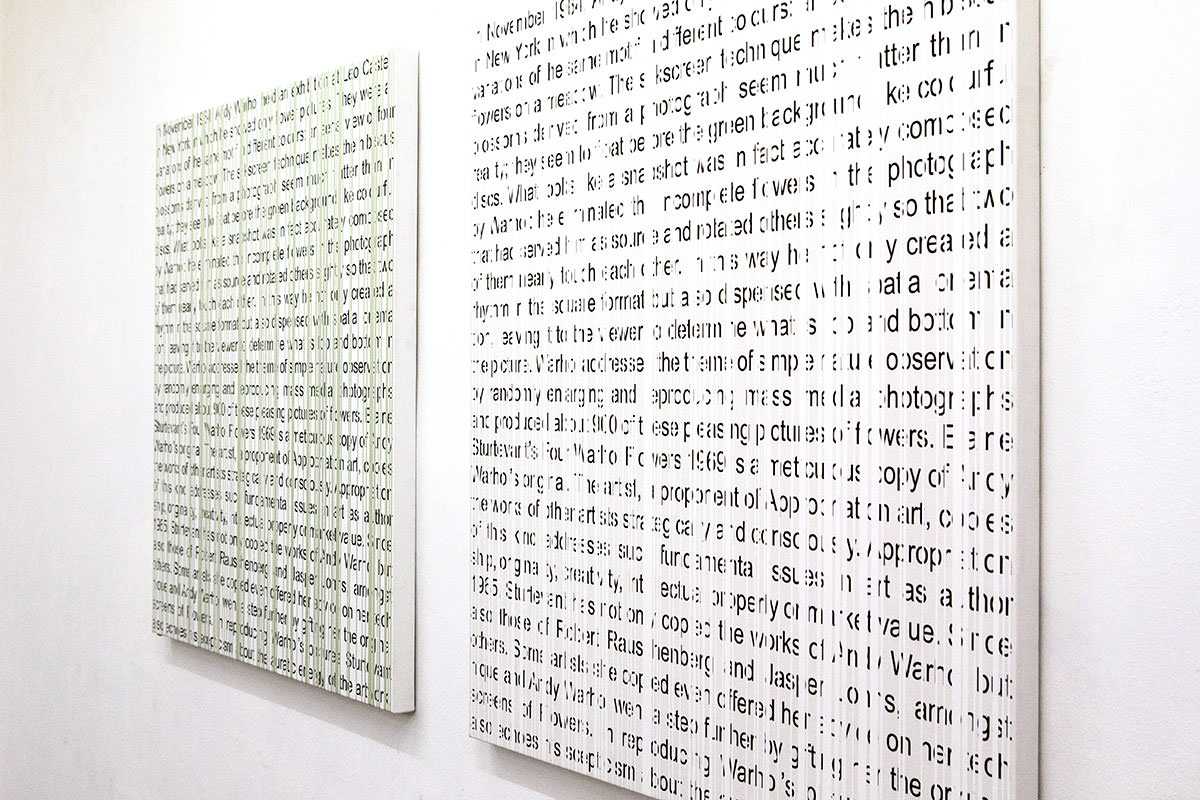 In November 1964 Andy Warhol held an exhibition at Leo Castelli
in New York in which he showed only flower pictures. They were all
variations of the same motif in different colours: an aerial view of four
flowers on a meadow. The silkscreen technique makes the hibiscus
blossoms derived from a photograph seem much flatter than in
reality; they seem to float before the green background like colourful
discs. What looks like a snapshot was in fact accurately composed
by Warhol: he eliminated the incomplete flowers in the photograph
that had served him as source and rotated others slightly so that two
of them nearly touch each other. In this way he not only created a
rhythm in the square format but also dispensed with spatial orienta
tion, leaving it to the viewer to determine what is top and bottom in
the picture. Warhol addressed the theme of simple nature observation
by randomly enlarging and reproducing mass media photographs
and produced about 900 of these pleasing pictures of flowers. Elaine
Sturtevant's Four Warhol Flowers 1969 is a meticulous copy of Andy
Warhol's original. The artist, a proponent of Appropriation art, copies
the works of other artists strategically and consciously. Appropriation
of this kind addresses such fundamental issues in art as author
ship, originality, creativity, intellectual property or market value. Since
1965, Sturtevant has not only copied the works of Andy Warhol but
also those of Robert Rauschenberg and Jasper Johns, amongst
others. Some artists she copied even offered her advice on her tech
nique and Andy Warhol went a step further by gifting her the original
screens of Flowers. In reproducing Warhol's pictures, Sturtevant
also echoes his scepticism about the auratic energy of the art work.
In November 1964 Andy
in New York in which he showed only
variations of the same motif in different colours: an
flowers on a meadow. The silkscreen technique makes the hibiscus
blossoms derived from a photograph seem much flatter than in
reality; they seem to float before the green background like colourful
discs. What looks like a snapshot was in fact accurately composed
by Warhol: he eliminated the incomplete flowers in the photograph
that had served him as source and rotated others slightly so that two
of them nearly touch each other. In this way he not only created a
rhythm in the square format but also dispensed with spatial orienta
tion, leaving it to the viewer to determine what is top and bottom in
the picture. Warhol addressed the theme of simple nature observation
by randomly enlarging and reproducing mass media photographs
and produced about 900 of these pleasing pictures of flowers. Elaine
Sturtevant's Four Warhol Flowers 1969 is a meticulous copy of Andy
Warhol's original. The artist, a proponent of Appropriation art, copies
the works of other artists strategically and consciously. Appropriation
of this kind addresses such fundamental issues in art as author
ship, originality, creativity, intellectual property or market value. Since
1965, Sturtevant has not only copied the works of Andy Warhol but
also those of Robert Rauschenberg and Jasper Johns, amongst
others. Some artists she copied even offered her advice on her tech
nique and Andy Warhol went a step further by gifting her the
screens of Flowers. In reproducing Warhol's
also echoes his scepticism about the